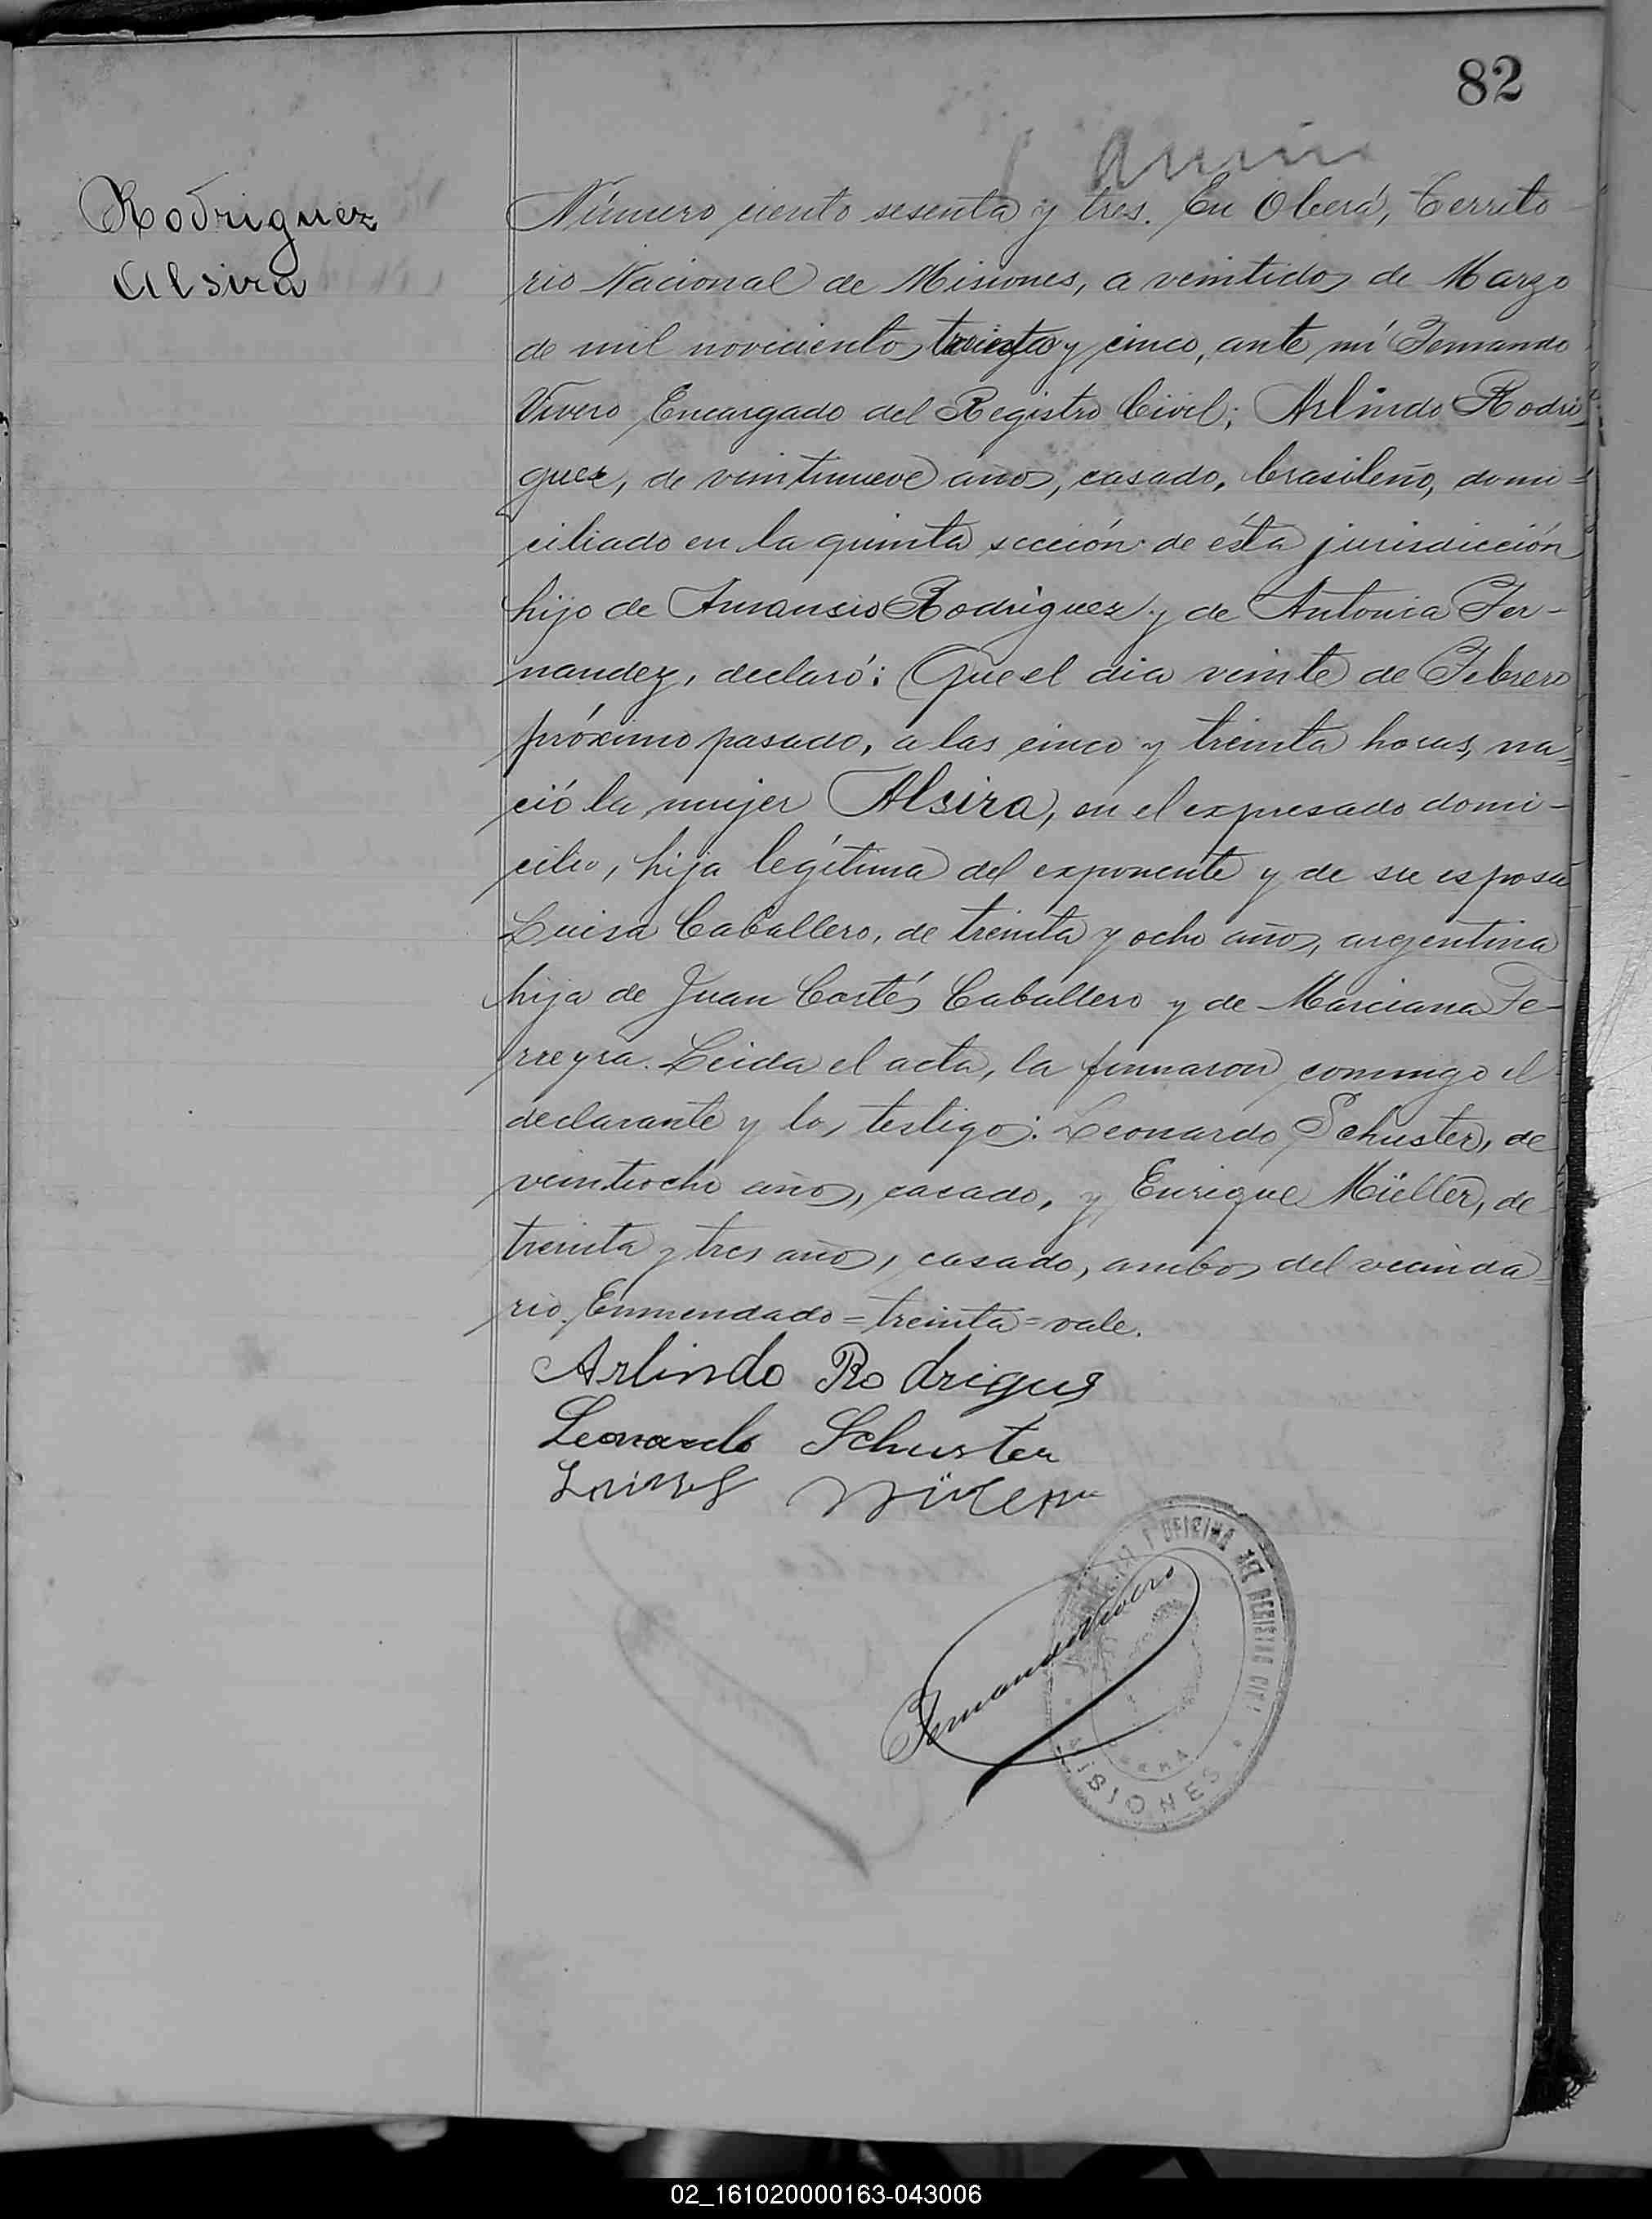 82
Rodriguez
Alsira
Número ciento sesenta y tres. En Oberá, Territo
rio Nacional de Misiones, a veintidos de Marzo
de mil noviciento, treinta y cinco, ante mí Fernando
Vivero Encargado del Registro Civil; Arlindo Rodri
guez, de veintinueve años, casado, brasileño, domi=
ciliado en la quinta sección de ésta jurisdicción
hijo de Amansio Rodriguez y de Antonia Fer-
nandez, declaró: Que el dia veinte de Febrero
próximo pasado, a las cinco y treinta horas, na=
ció la mujer Alsira, en el expresado domi-
cilio, hija legítima del exponente y de su esposa
Luisa Caballero, de treinta y ocho años, argentina
hija de Juan Cortés Caballero y de Marciana Fe-
rreyra. Leida el acta, la firmaron conmigo el
declarante y los testigos: Leonardo Schuster, de
veintiocho años, casado, y Enrique Müller, de
treinta y tres años, casado, ambos del vecinda=
rio. Enmendado=treinta=vale.
Arlindo Rodrigues
Leonardo Schuster
Fernando Vivero
OFICINA DEL REGISTRO CIVIL
MISIONES
02_161020000163-043006